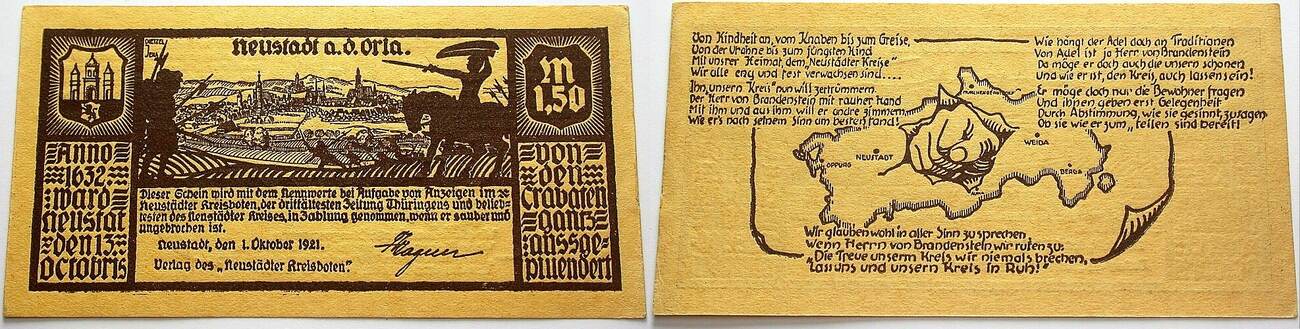 Neustadt a.d. Orla.
M
1,50
Anno
1632
ward
neustat
den 13
octobris
von
den
Crabaten
gantz
aussge-
pluendert
Dieser Schein wird mit dem Nennwerte bei Aufgabe von Anzeigen im
Neustädter Kreisboten, der drittältesten Zeitung Thüringens und belieb-
testen des Neustädter Kreises, in Zahlung genommen, wenn er sauber und
ungebrochen ist.
Neustadt, den 1. Oktober 1921.
Verlag des „Neustädter Kreisboten“.
Von Kindheit an, vom Knaben bis zum Greise,
Von der Urahne bis zum jüngsten Kind
Mit unsrer Heimat, dem „Neustädter Kreise“
Wir alle eng und fest verwachsen sind....
Ihn, unsern Kreis nun will zertrümmern
Der Herr von Brandenstein mit rauher Hand
Mit ihm und aus ihm will er andre zimmern,
Wie er's nach seinem Sinn am besten fand!
Wie hängt der Adel doch an Traditionen
Von Adel ist ja Herr von Brandenstein
Da möge er doch auch die unsern schonen
Und wie er ist, den Kreis, auch lassen sein!
Er möge doch nur die Bewohner fragen
Und ihnen geben erst Gelegenheit
Durch Abstimmung, wie sie gesinnt, zu sagen
Ob sie wie er zum „teilen sind bereit!
OPPURG
NEUSTADT
WEIDA
BERGA
Wir glauben wohl in aller Sinn zu sprechen,
Wenn Herrn von Brandenstein wir rufen zu:
„Die Treue unserm Kreis wir niemals brechen,
Lass uns und unsern Kreis in Ruh!“